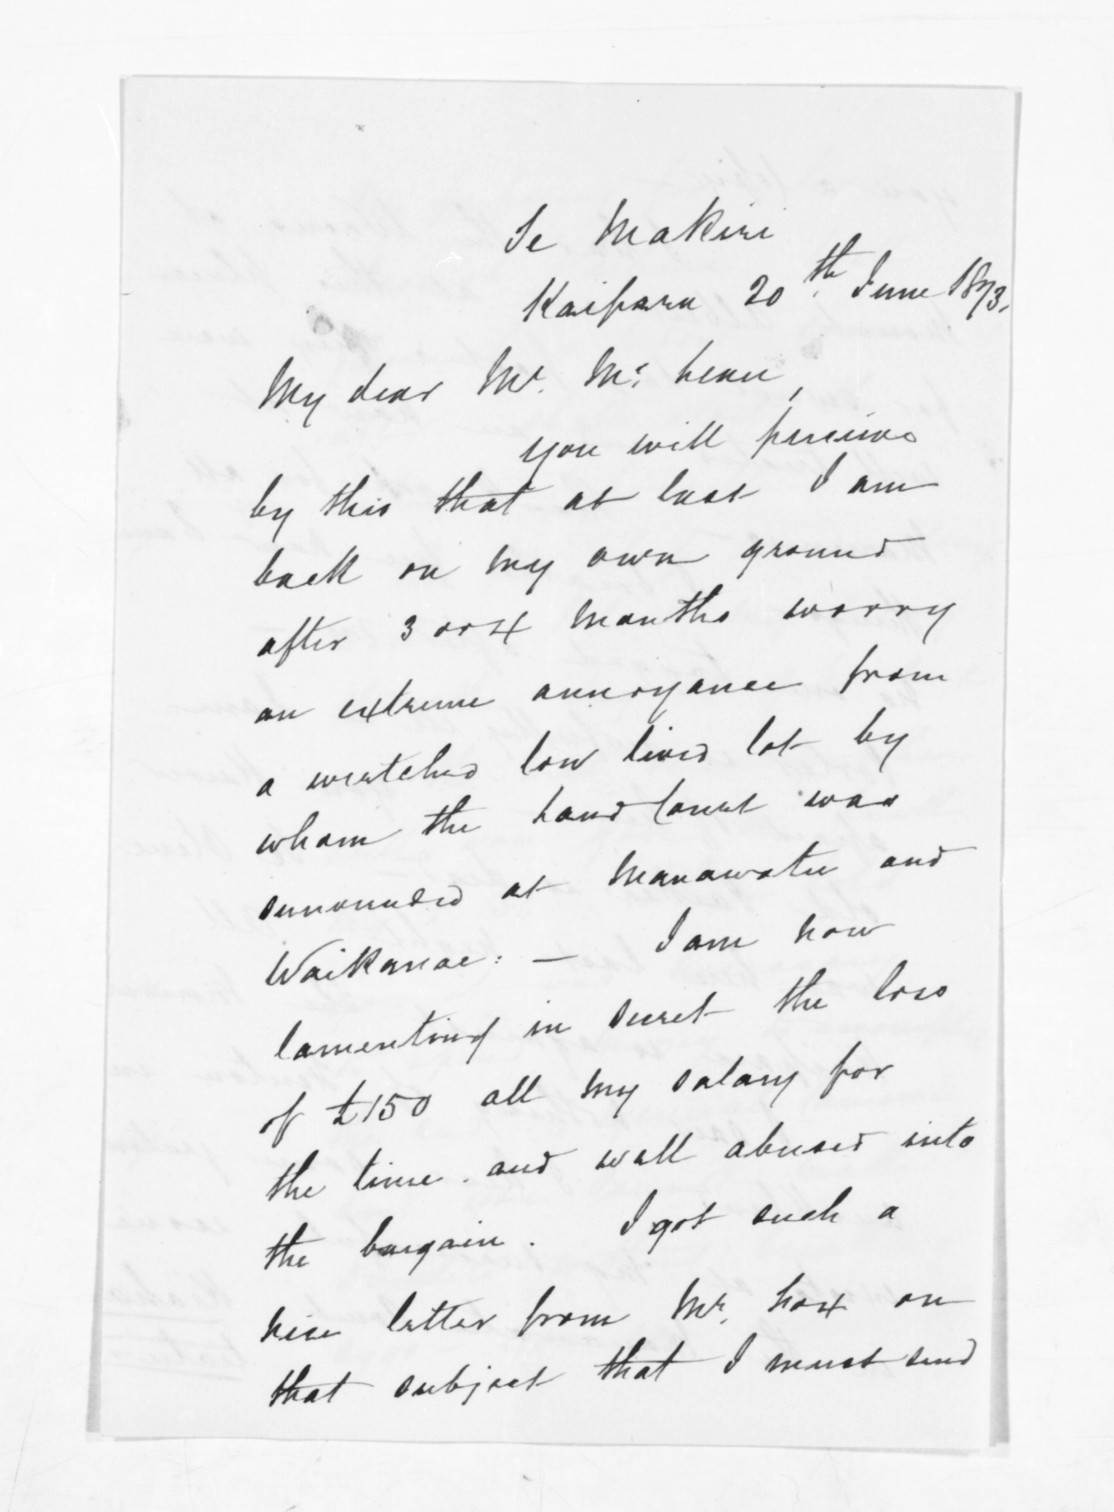 Te Makiri
Kaipara 20th. June 1873.
My dear Mr. McLean,
you will perceive
by this that at last I am
back on my own ground
after 3 or 4 months worry
an extreme annoyance from
a wretched low lived lot by
whom the Land Court was
surrounded at Manawatu and
Waikanae: — I am now
lamenting in secret the loss
of £150 all my salary for
the time. and well abused into
the bargain. I got such a
nice letter from Mr. on
that subject that I must send